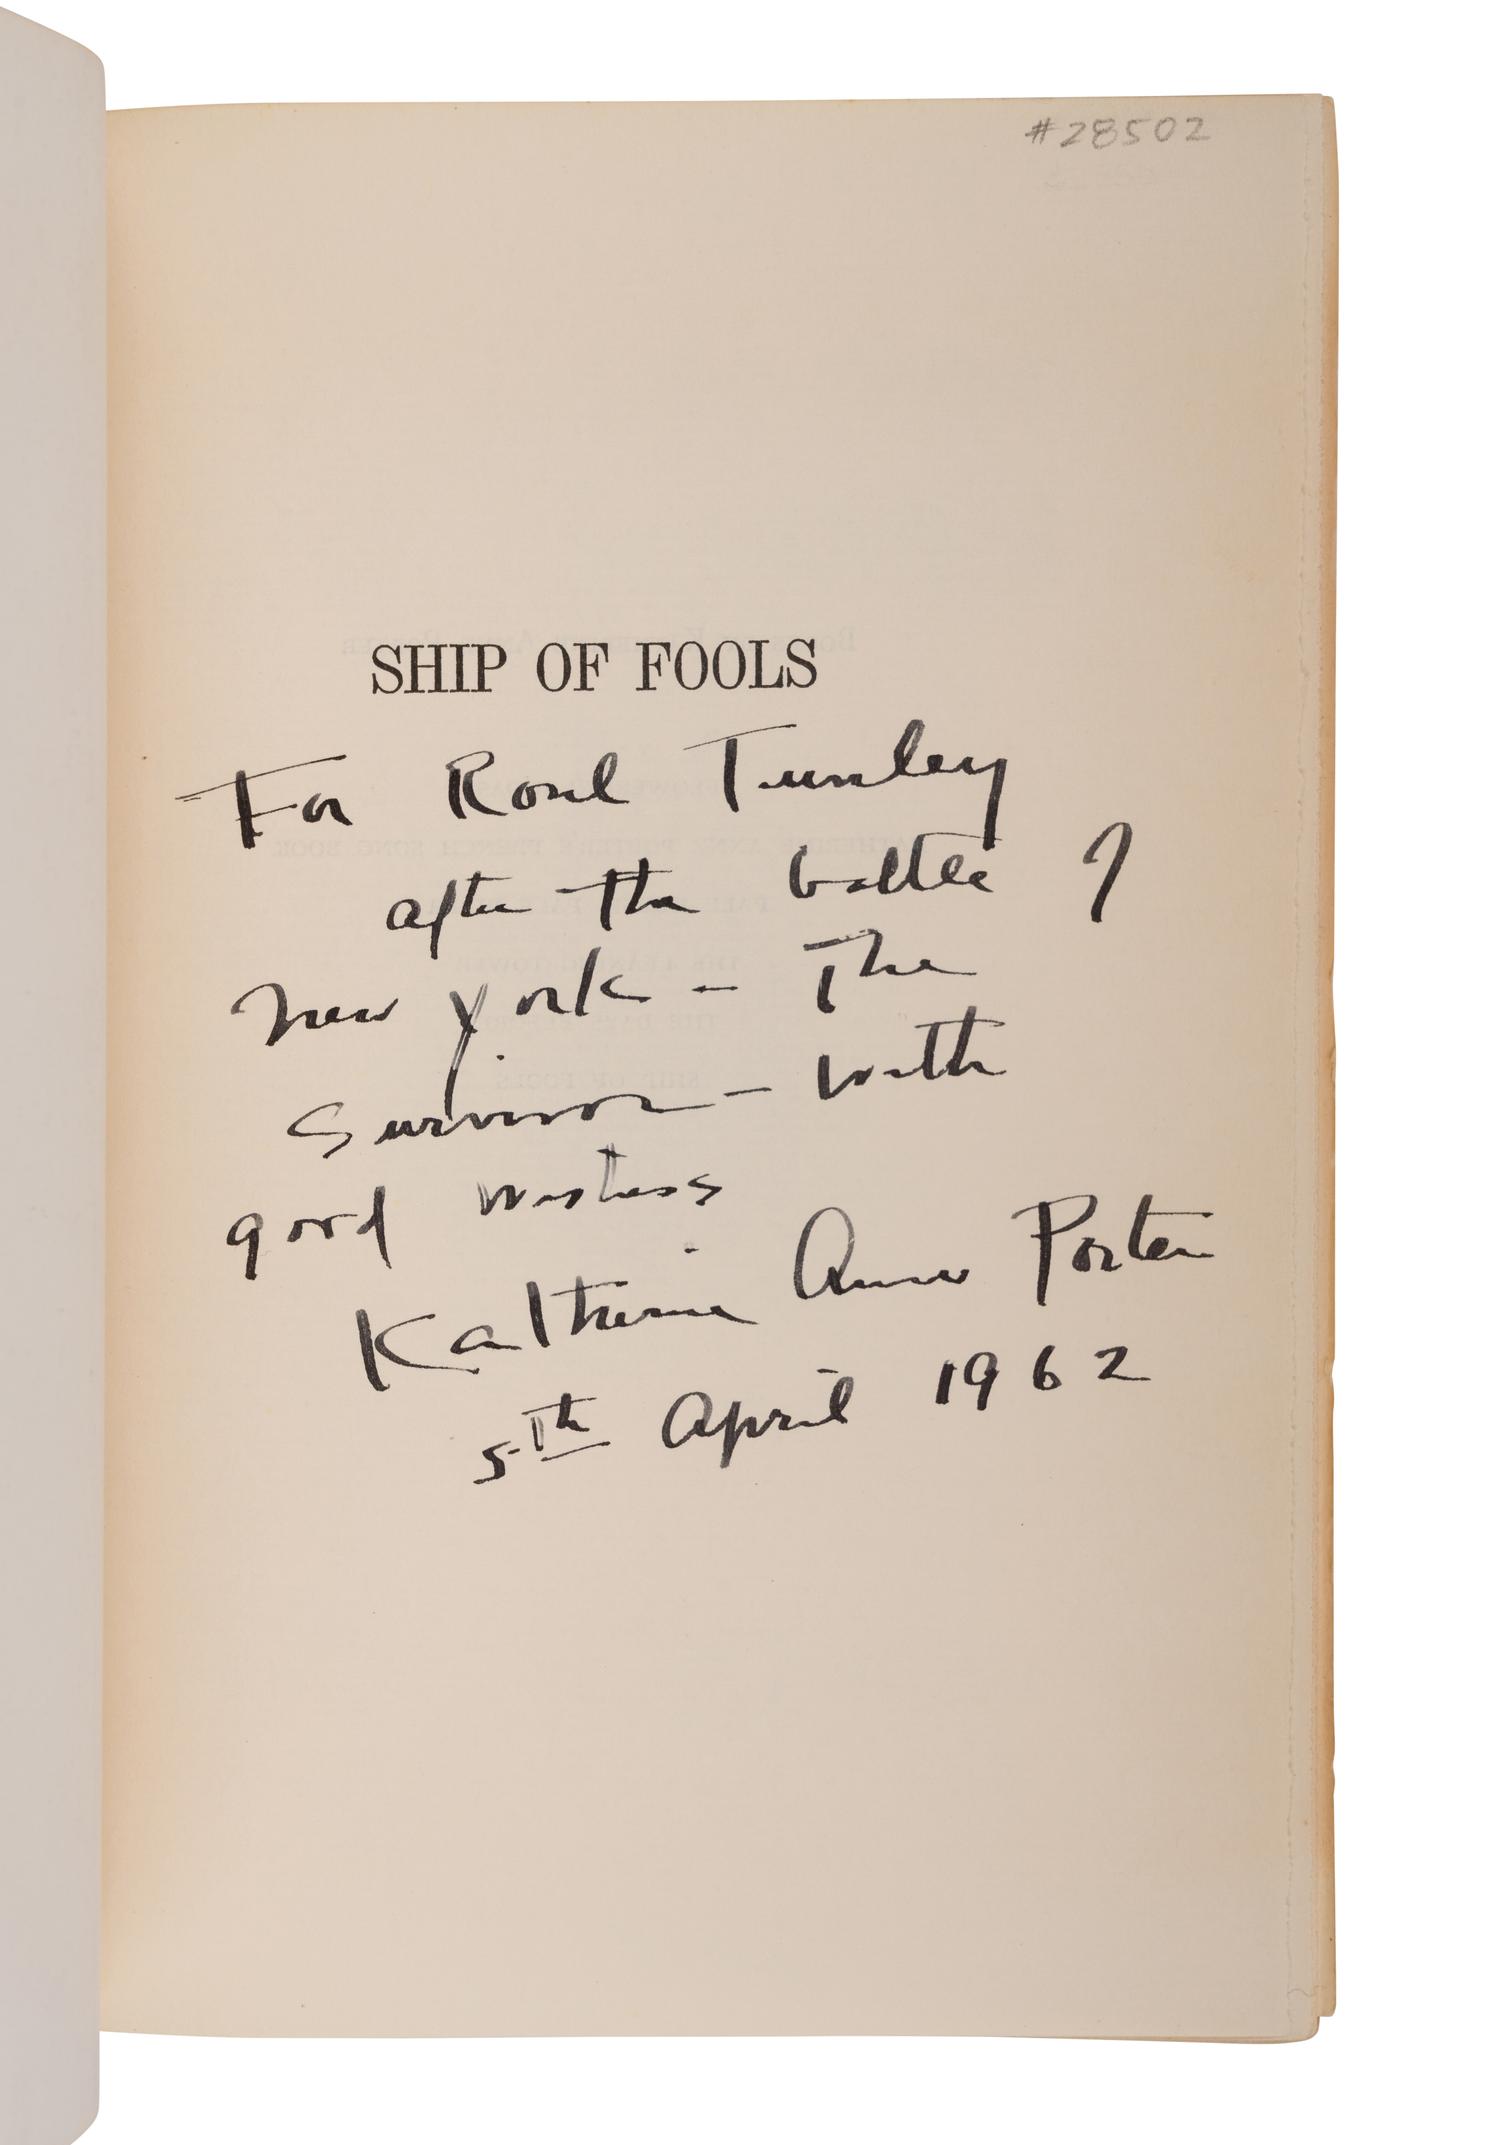 #28502
SHIP OF FOOLS
For Roul Tunley
after the battle of
New York - The
Survivor - with
good wishes
Katherine Anne Porter
5th April 1962